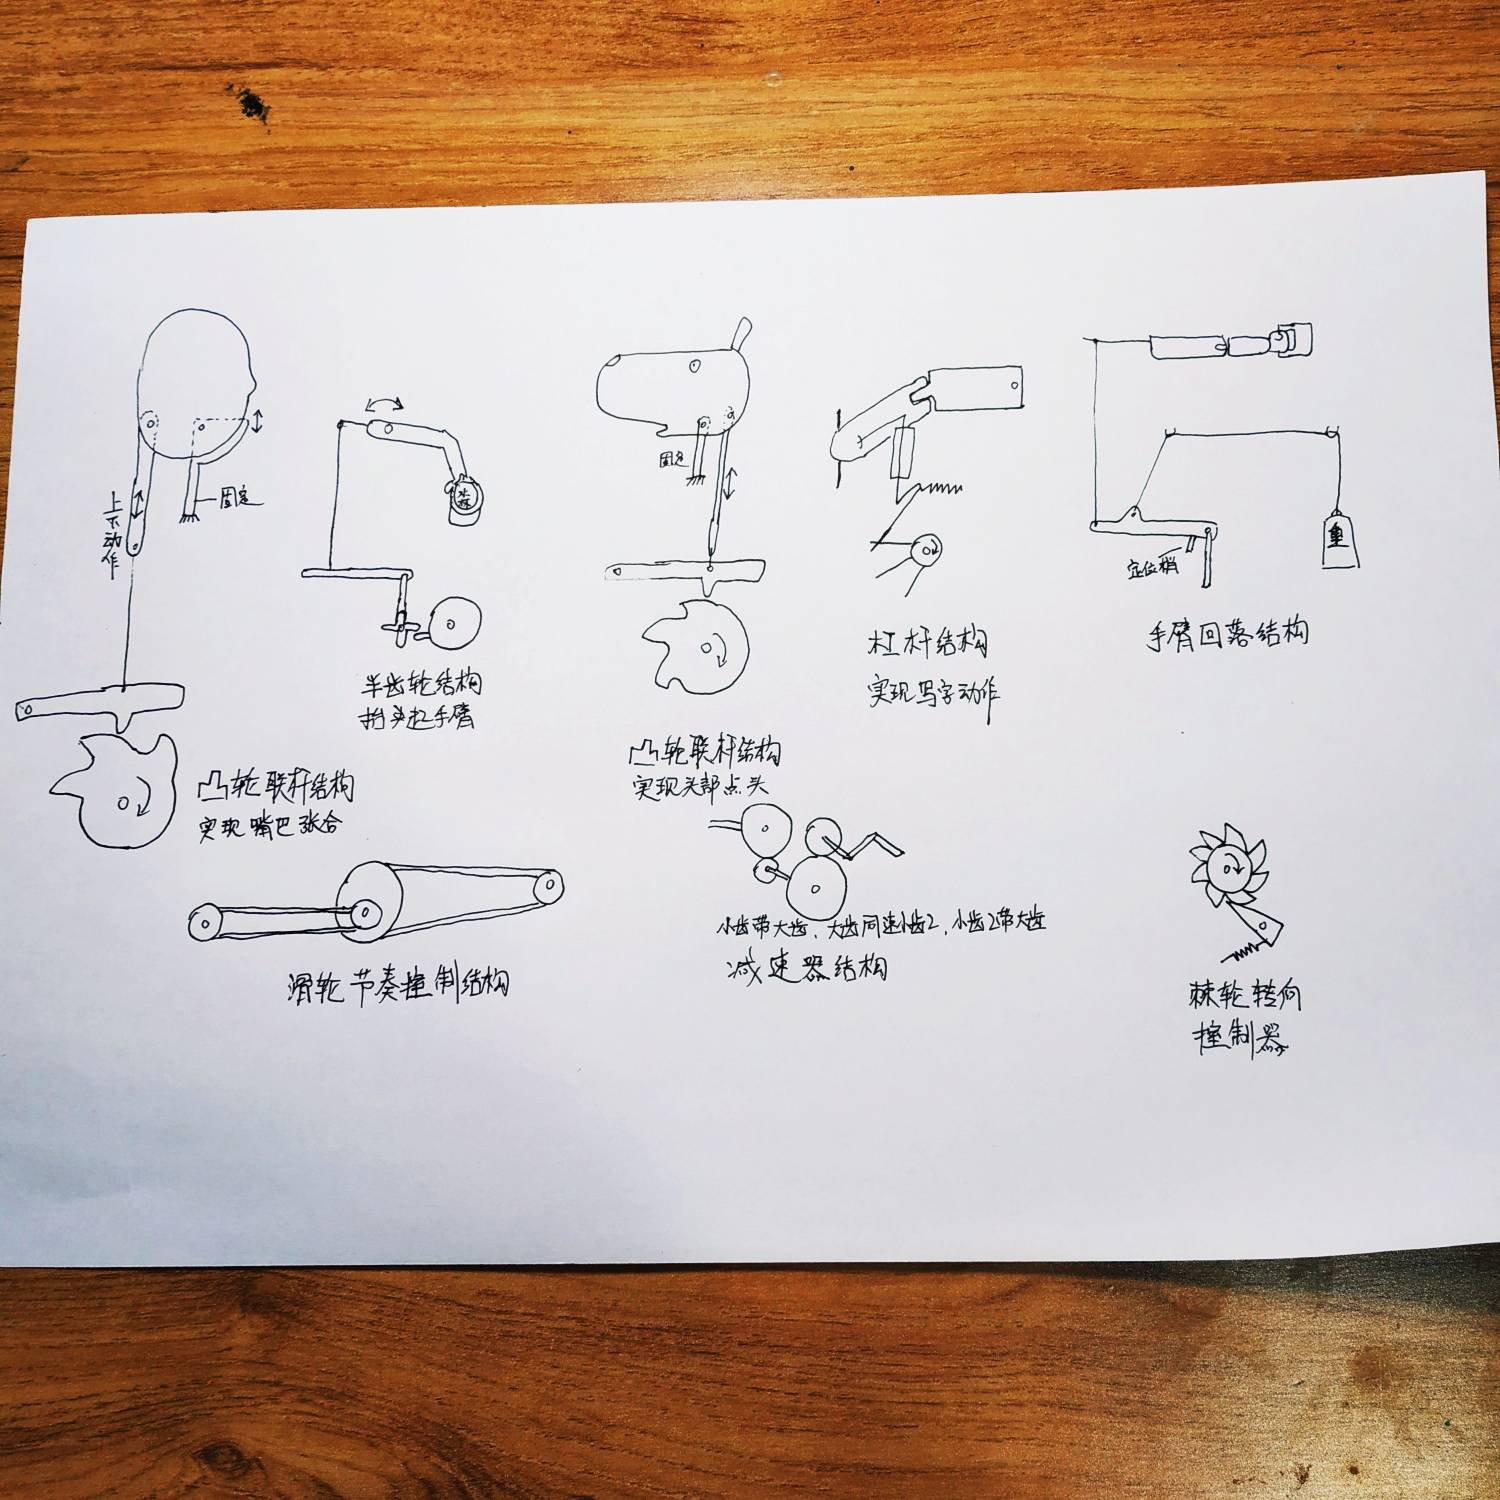 上下动作
固定
凸轮联杆结构
实现嘴巴张合
半齿轮结构
抬头起手臂
固定
凸轮联杆结构
实现头部点头
杠杆结构
实现写字动作
重
定位梢
手臂回落结构
滑轮节奏控制结构
小齿带大齿、大齿同速小齿2,小齿2带大齿
减速器结构
棘轮转向
控制器